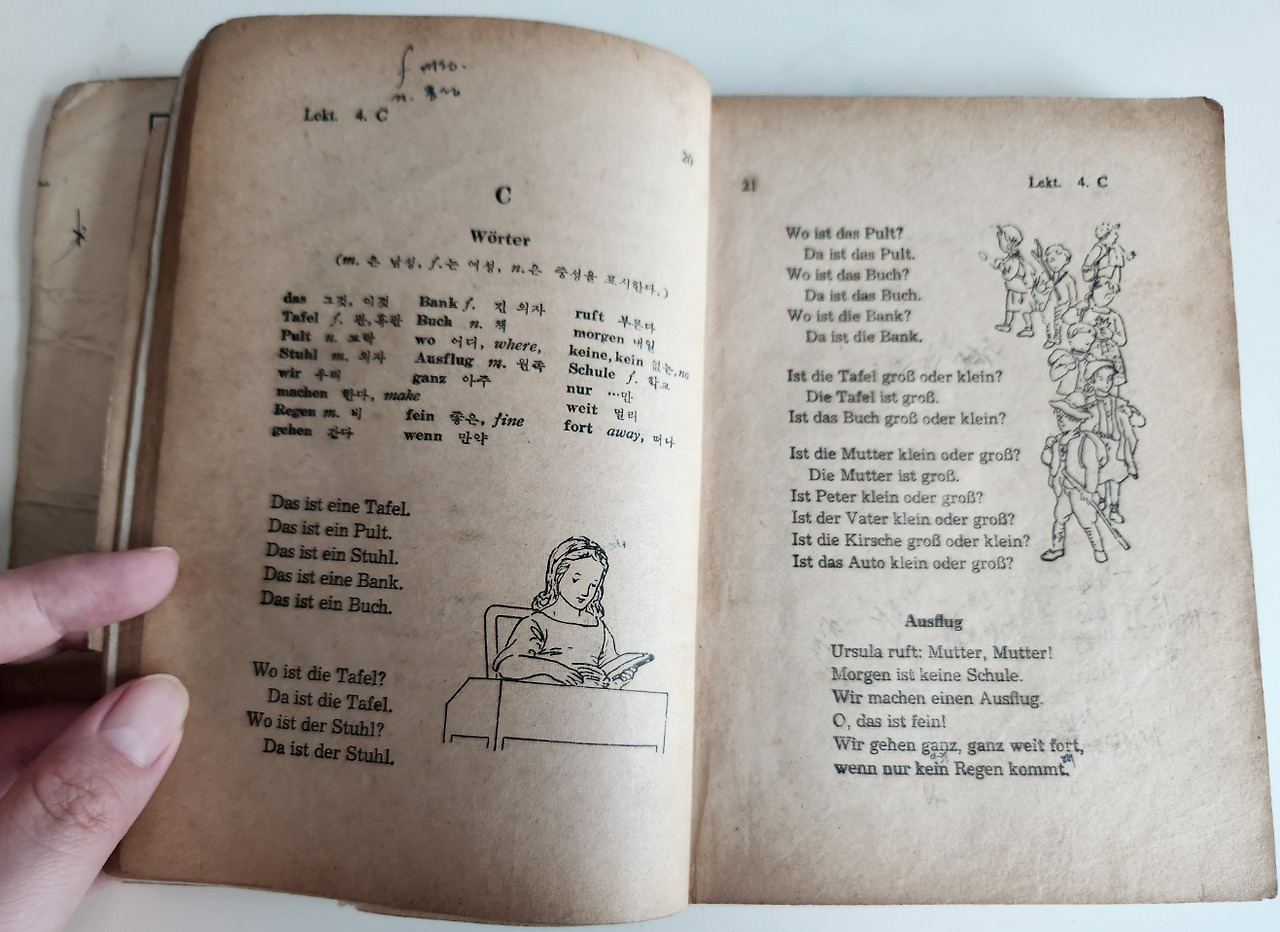 Lekt. 4. C
20
C
Wörter
(m. 은 남성, f.는 여성, n.은 중성을 표시한다.)
das 그것, 이것 Bank f. 긴 의자 ruft 부른다
Tafel f. 판,흑판 Buch n. 책 morgen 내일
Pult n. 교탁 wo 어디, where, keine, kein 없는, no
Stuhl m. 의자 Ausflug m. 원족 Schule f. 학교
wir 우리 ganz 아주 nur …만
machen 한다, make weit 멀리
Regen m. 비 fein 좋은, fine fort away, 떠나
gehen 간다 wenn 만약
Das ist eine Tafel.
Das ist ein Pult.
Das ist ein Stuhl.
Das ist eine Bank.
Das ist ein Buch.
Wo ist die Tafel?
Da ist die Tafel.
Wo ist der Stuhl?
Da ist der Stuhl.
21
Lekt. 4. C
Wo ist das Pult?
Da ist das Pult.
Wo ist das Buch?
Da ist das Buch.
Wo ist die Bank?
Da ist die Bank.
Ist die Tafel groß oder klein?
Die Tafel ist groß.
Ist das Buch groß oder klein?
Ist die Mutter klein oder groß?
Die Mutter ist groß.
Ist Peter klein oder groß?
Ist der Vater klein oder groß?
Ist die Kirsche groß oder klein?
Ist das Auto klein oder groß?
Ausflug
Ursula ruft: Mutter, Mutter!
Morgen ist keine Schule.
Wir machen einen Ausflug.
O, das ist fein!
Wir gehen ganz, ganz weit fort,
wenn nur kein Regen kommt.